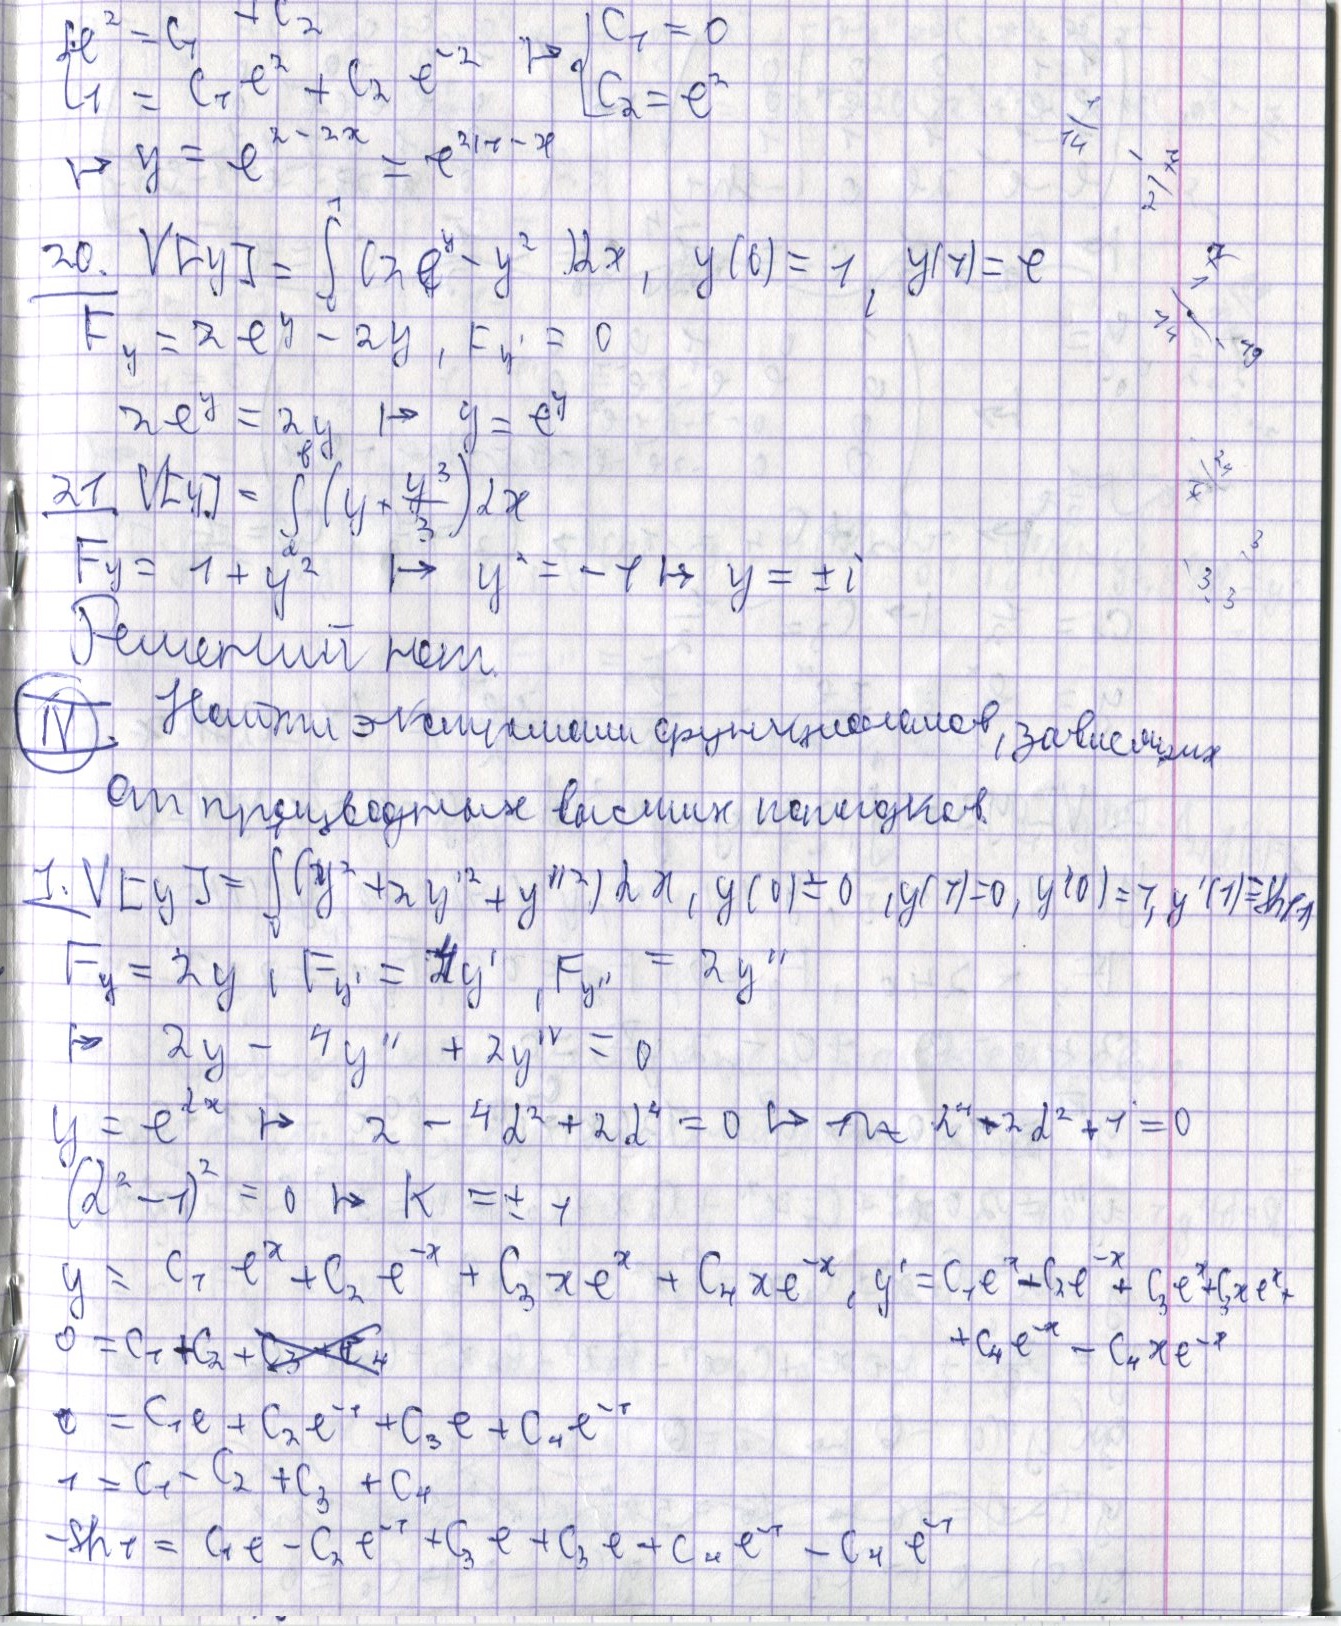 e² = C₁ + C₂
1 = C₁e² + C₂e⁻² ↦ [C₁ = 0
C₂ = e²
↦ y = e^{2-2x} =
20. V[y] = ∫₀¹ (2e^y - y²)dx, y(0) = 1, y(1) = e
F_y = 2e^y - 2y, F_y' = 0
2e^y = 2y ↦ y = e^y
21 V[y] = ∫ₐᵇ (y + y³/3)dx
F_y = 1 + y² ↦ y² = -1 ↦ y = ±i
Решений нет.
IV. Найти экстремали функционалов, зависящих
от производных высших порядков.
1. V[y] = ∫₀¹ (y² + 2y'² + y''²)dx, y(0) = 0, y(1) = 0, y'(0) = 1, y'(1) = -sh 1
F_y = 2y, F_y' = 4y', F_y'' = 2y''
↦ 2y - 4y'' + 2y^{IV} = 0
y = e^{λx} ↦ 2 - 4λ² + 2λ⁴ = 0 ↦ λ⁴ - 2λ² + 1 = 0
(λ² - 1)² = 0 ↦ K = ± 1
y = C₁e^x + C₂e^{-x} + C₃xe^x + C₄xe^{-x}, y' = C₁e^x - C₂e^{-x} + C₃e^x + C₃xe^x +
+ C₄e^{-x} - C₄xe^{-x}
0 = C₁ + C₂
0 = C₁e + C₂e⁻¹ + C₃e + C₄e⁻¹
1 = C₁ - C₂ + C₃ + C₄
-sh 1 = C₁e - C₂e⁻¹ + C₃e + C₃e + C₄e⁻¹ - C₄e⁻¹